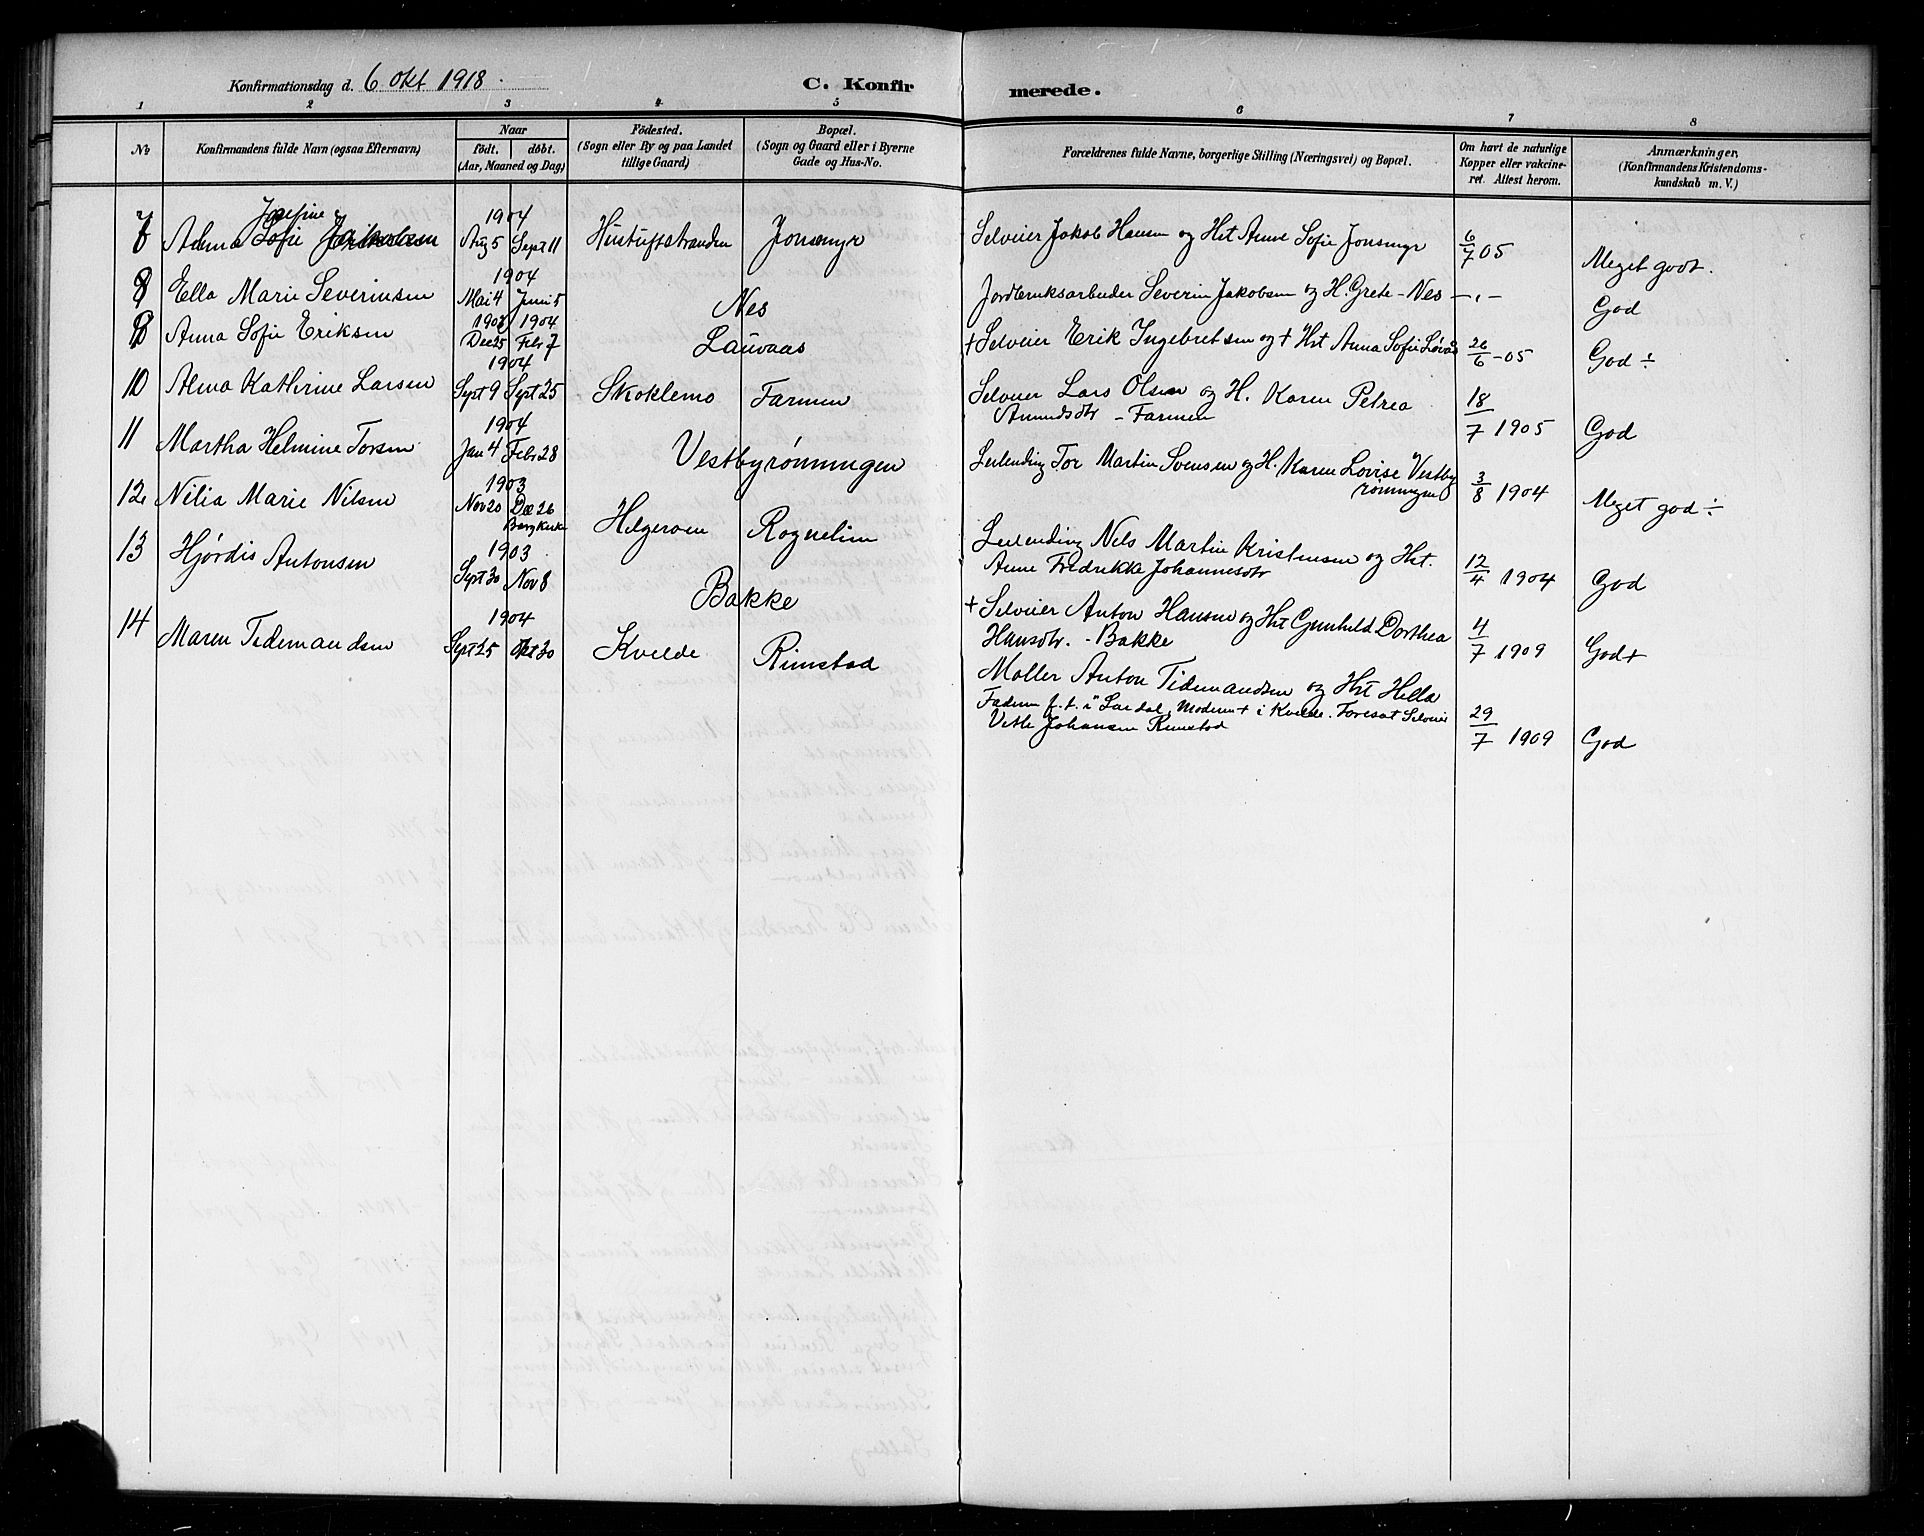 Konfirmationsdag d. 6 Okt 1918.
C. Konfirmerede.
1 2 3 4 5 6 7 8
No
Konfirmandens fulde Navn (ogsaa Efternavn)
Naar
födt. döbt.
(Aar, Maaned og Dag)
Födested.
(Sogn eller By og paa Landet
tillige Gaard)
Bopæl.
(Sogn og Gaard eller i Byerne
Gade og Hus-No.
Forældrenes fulde Navne, borgerlige Stilling (Næringsvei) og Bopæl.
Om havt de naturlige
Kopper eller vakcine-
ret. Attest herom.
Anmærkninger,
(Konfirmandens Kristendoms-
kundskab m. V.)
Josefine 1904
7 Alma Sofie Jakobsen Aug 5 Sept 11 Histuftstranden Jonsmyr Selveier Jakob Hansen og Hst Anne Sofie Jonsmyr 6/7 05 Meget godt.
1904
8 Ella Marie Severinsen Mai 4 Juni 5 Nes Jordbruksarbeider Severin Jakobsen og H. Grete - Nes -"- God
1903 1904
9 Anna Sofie Eriksen Dec 25 Febr 7 Lauvaas + Selveier Erik Ingebretsen og + Hst Anna Sofie Løvås 26/6 -05 God ÷
1904
10 Alma Kathrine Larsen Sept 9 Sept 25 Skoklemo Farmen Selveier Lars Olsen og H. Karen Petrea
Amundsdtr - Farmen 18/7 1905 God
1904
11 Martha Helmine Torsen Jan 4 Febr 28 Vestbyrønningen Leilending Tor Martin Svensen og H. Karen Lovise Vestby
rønningen 3/8 1904 Meget god ÷
1903
12 Nilia Marie Nilsen Nov 20 Dec 26 Helgeroen Rognelien Leilending Nels Martin Kristensen og Hst.
Berg Kirke
Anne Fredrikke Johannesdtr 12/4 1904 God
1903
13 Hjørdis Antonsen Sept 30 Nov 8 Bakke + Selveier Anton Hansen og Hst Gunhild Dorthea
Hansdtr. - Bakke 4/7 1909 God +
1904
14 Maren Tidemandsen Sept 25 Okt 30 Kvelde Rimstad Møller Anton Tidemandsen og Hst Hella
Faderen f. t. i Lardal, Moderen + i Kvelde. Foresat Selveier
Vetle Johansen Rimstad 29/7 1909 God